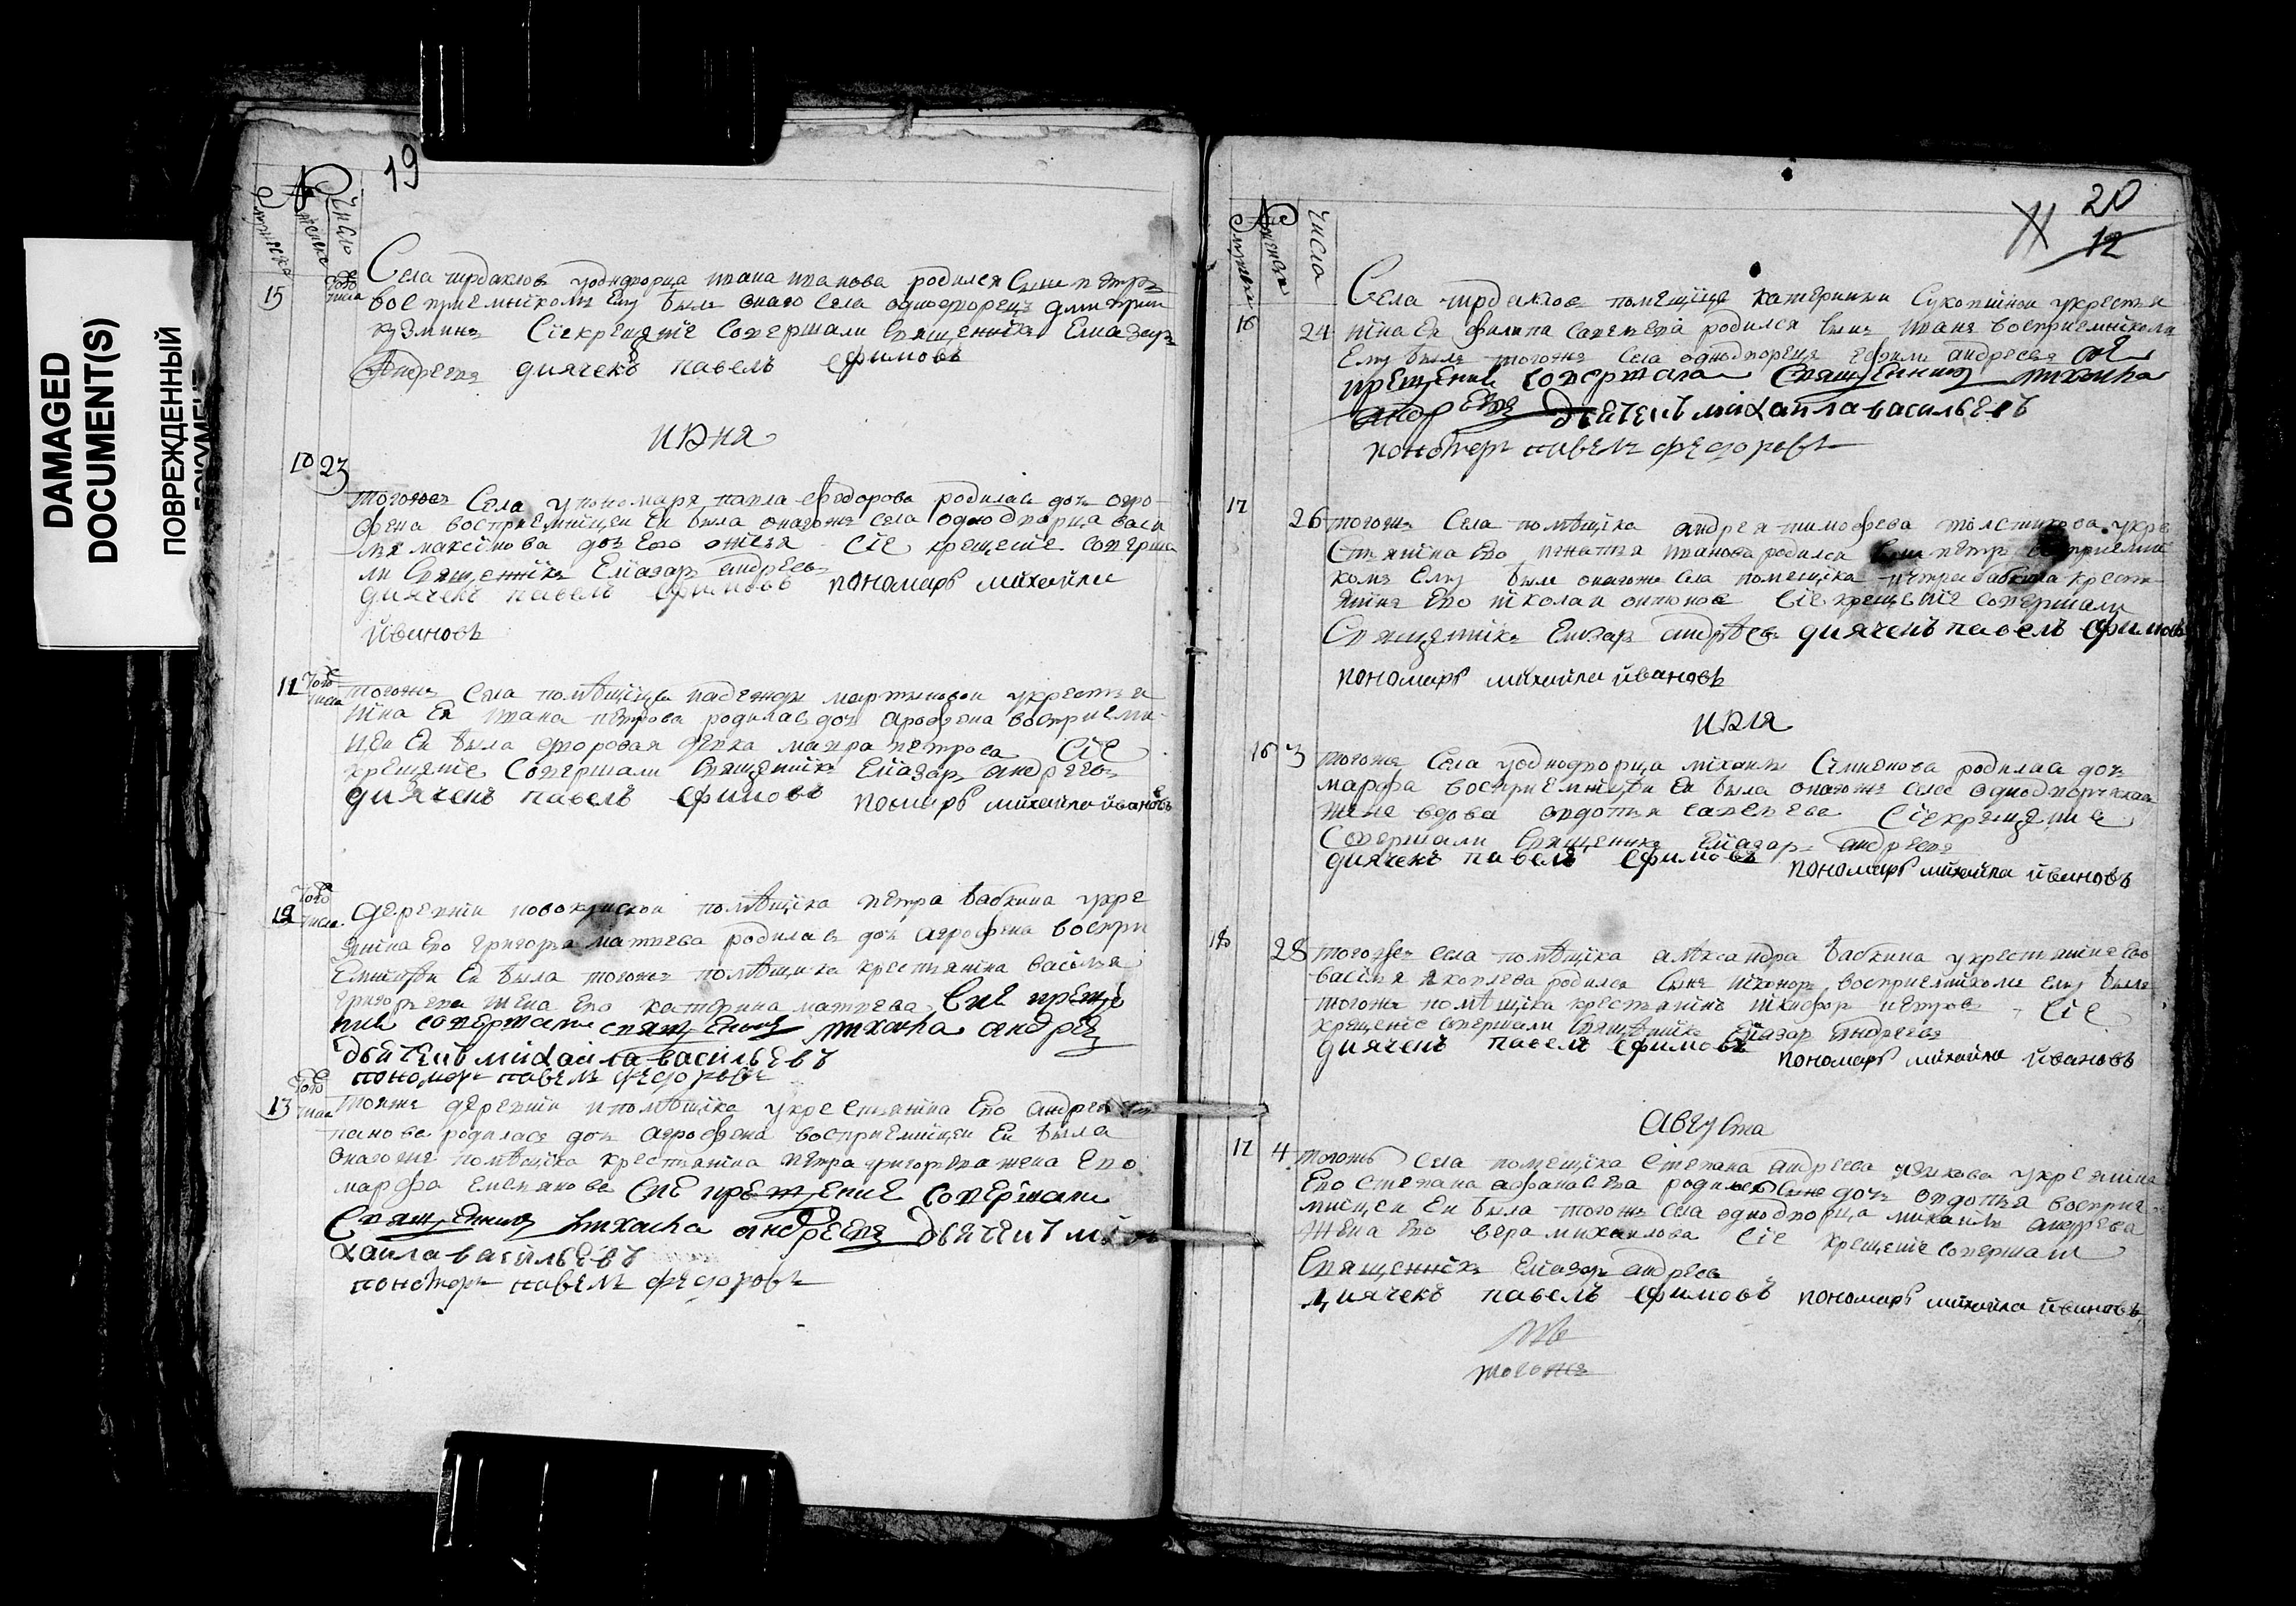 DAMAGED
DOCUMENT(S)
ПОВРЕЖДЕННЫЙ
19
число
15
того
числа
Села уоднодворца ивана иванова родился сынъ петръ
восприемникомъ ему былъ онаго села однодворецъ дмитрий
кузминъ Сие крещение совершали священникъ Елиазаръ
Андреевъ диячекъ павелъ ефимовъ
июня
10 23
тогожъ Села упономаря павла федорова родилась дочь огро
фена восприемницеи еи была онагожъ села однодворца васи
лья максимова дочь его Сие крещение соверша
ли священникъ Елиазаръ андреевъ
диячекъ павелъ ефимовъ пономарь михайла
ивановъ
11 того
числа
тогожъ Села помѣщицы надежды мартыновои укрестья
нина ея ивана петрова родилась дочь агрофена восприемни
цеи еи была дворовая девка мавра петрова Сие
крещение Совершали священникъ Елиазаръ андреевъ
диячекъ павелъ ефимовъ помарь михайла ивановъ
12 того
числа
деревни помѣщика петра бабкина укре
янина его григорья матвева родилась дочь агрофена воспри
емницеи еи была тогожъ помѣщика крестьянина василья
григорьева жена его катерина матвева Сие креще
ние совершали священникъ михаила андреевъ
дьячекъ михаила васильевъ
пономарь павелъ федоровъ
13 того
числа
тояже деревни и помѣщика укрестьянина его андрея
панова родилась дочь агрофена восприемницеи еи была
онагоже помѣщика крестьянина петра григорьева жена его
марфа емельянова Сие крещение совершали
Священникъ михаила андреевъ дьячекъ ми
хаила васильевъ
пономарь павелъ федоровъ
20
12
числа
16 24
Села помещицы катерины укрестья
нина ея филипа савельева родился сынъ иванъ восприемникомъ
ему былъ тогожъ села однодворецъ ефимъ андреевъ сие
крещение совершала Священникъ михаила
андреевъ дьячекъ михаила васильевъ
пономарь павелъ федоровъ
17
26 тогожъ Села помѣщика андрея тимофева толстикова укре
стьянина его игнатья иванова родился сынъ петръ восприемни
комъ ему былъ онагожъ села помещика петра бабкина крестъ
янинъ его николаи Сие крещение совершали
Священникъ Елизаръ андрѣевъ диячекъ павелъ ефимовъ
пономарь михайла ивановъ
июля
16 3 тогожъ Села уоднодворца михаилы Симионова родилась дочь
марфа восприемницеи еи была онагожъ села однодворческая
жена вдова овдотья савелева Сие крещение
Совершали Священникъ Елиазаръ андреевъ
диячекъ павелъ ефимовъ пономарь михайла ивановъ
18 28 тогожъ села помѣщика александра бабкина укрестьянина ево
василья яковлева родился сынъ никаноръ восприемникомъ ему былъ
тогожъ помѣщика крестьянинъ никифоръ петровъ Сие
крещение совершали Священникъ Елиазаръ андреевъ
диячекъ павелъ ефимовъ пономарь михайла ивановъ
августа
17 4 тогожъ Села помещика Степана андреева укрестьянина
его степана афанасьева родилась дочь овдотья восприе
мницеи еи была тогожъ села однодворца михаилы андрева
жена его вера михаилова Сие крещение совершали
Священникъ Елиазаръ андреевъ
диячекъ павелъ ефимовъ пономарь михайла ивановъ
тогожъ